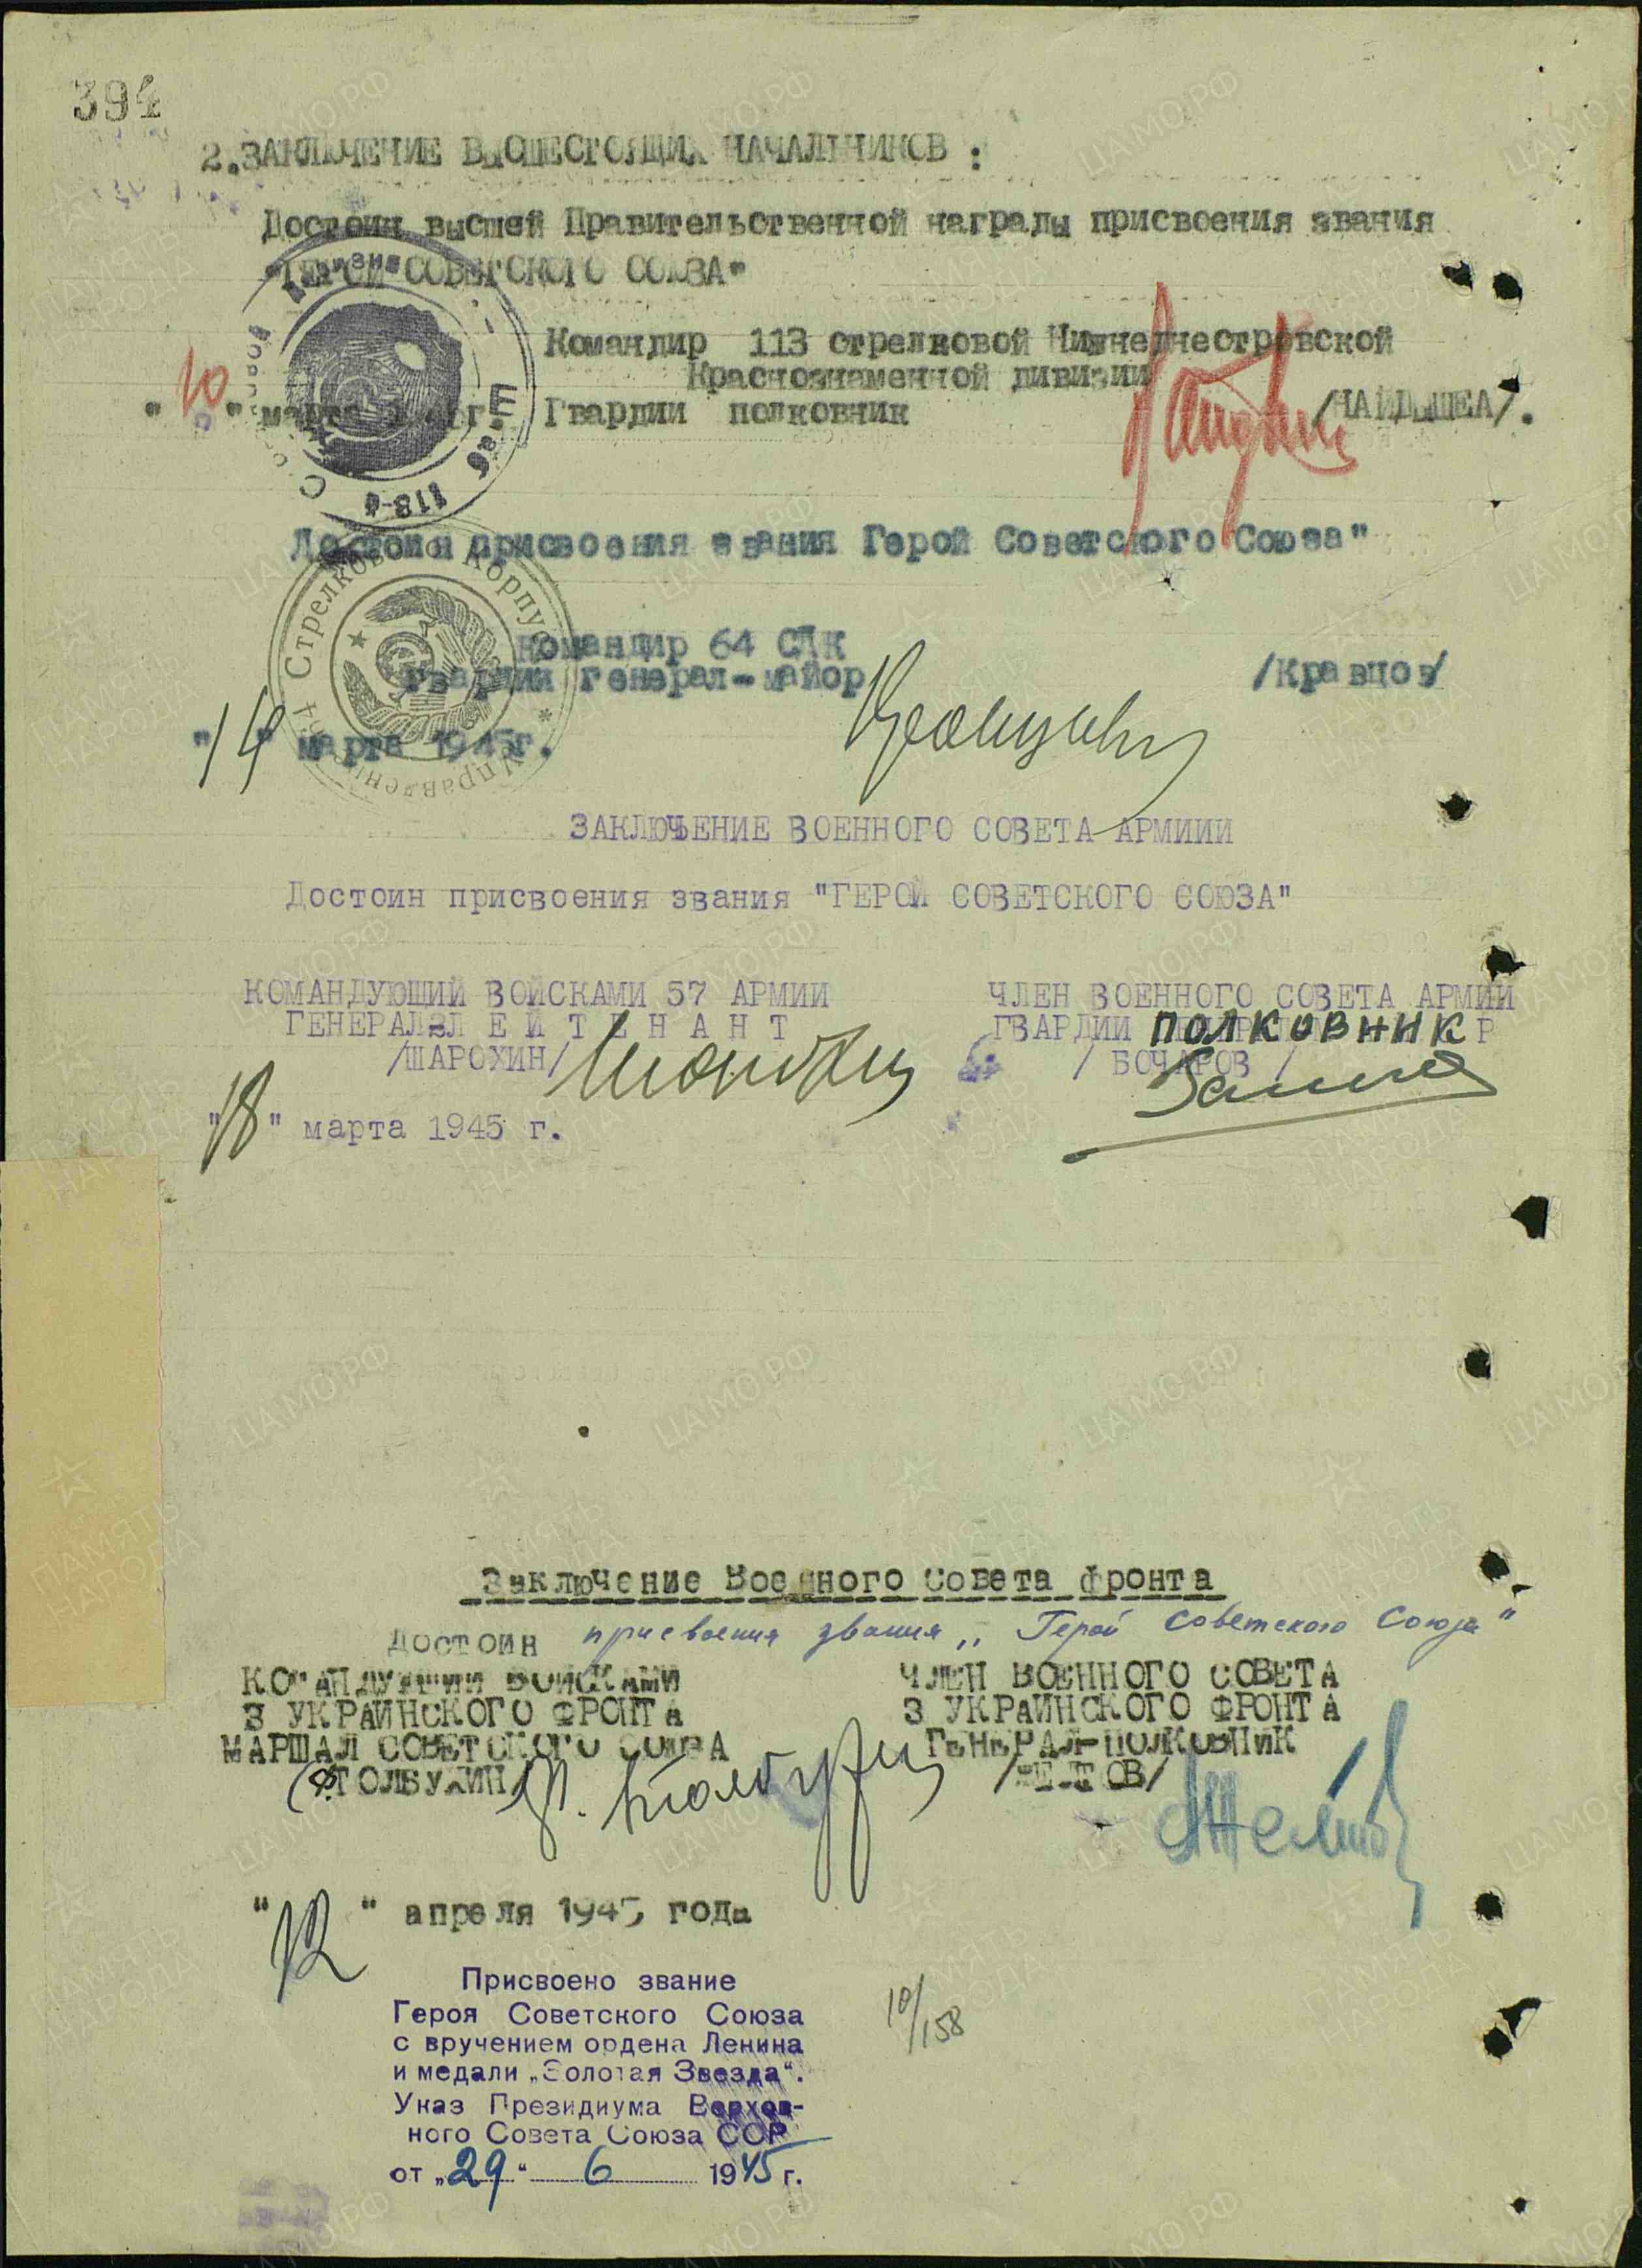 394
2.ЗАКЛЮЧЕНИЕ ВЫСШЕСТОЯЩИХ НАЧАЛЬНИКОВ :
Достоин высшей Правительственной награды присвоения звания
"ГЕРОЙ СОВЕТСКОГО СОЮЗА"
Командир 113 стрелковой Нижнеднестровской
Краснознаменной дивизии
"10" марта г. Гвардии полковник /НАЙДЫШЕВ/.
Штаб 113-й
Достоин присвоения звания Герой Советского Союза"
Стрелкового Корпуса
Управление
Командир 64 СДК
гвардии генерал-майор /Кравцов/
"14" марта 1945г.
ЗАКЛЮЧЕНИЕ ВОЕННОГО СОВЕТА АРМИИИ
Достоин присвоения звания "ГЕРОЙ СОВЕТСКОГО СОЮЗА"
КОМАНДУЮЩИЙ ВОЙСКАМИ 57 АРМИИ ЧЛЕН ВОЕННОГО СОВЕТА АРМИИ
ГЕНЕРАЛ Л Е Й Т Е Н А Н Т ГВАРДИИ ПОЛКОВНИК
/ШАРОХИН/ / БОЧАРОВ /
"18" марта 1945 г.
Заключение Военного Совета фронта
Достоин присвоения звания „Герой Советского Союза"
КОМАНДУЮЩИЙ ВОЙСКАМИ ЧЛЕН ВОЕННОГО СОВЕТА
3 УКРАИНСКОГО ФРОНТА 3 УКРАИНСКОГО ФРОНТА
МАРШАЛ СОВЕТСКОГО СОЮЗА ГЕНЕРАЛ-ПОЛКОВНИК
(Ф.ТОЛБУХИН) Ф. Толбухин
"12" апреля 1945 года
Присвоено звание
Героя Советского Союза
с вручением ордена Ленина
и медали „Золотая Звезда".
Указ Президиума Верхов-
ного Совета Союза ССР
от „29" 6 1945 г.
10/158
ЦАМО.РФ
ПАМЯТЬ НАРОДА